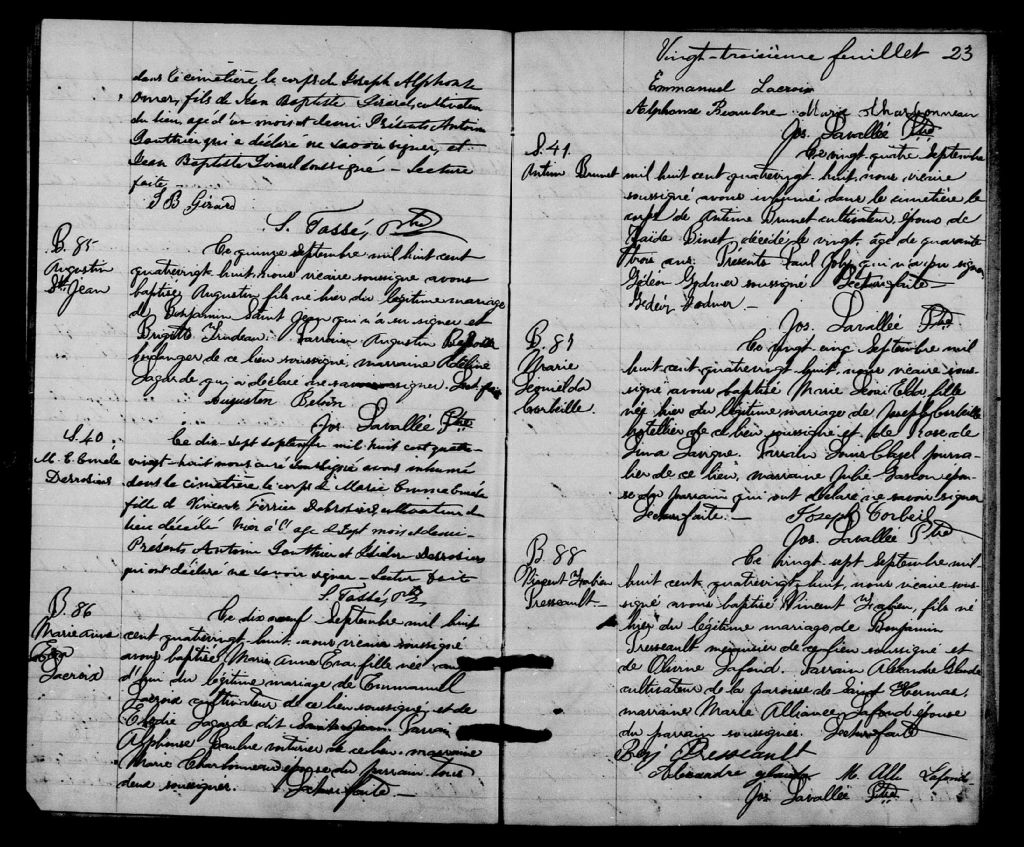 dans le cimetière le corps de Joseph Alphonse
Omer, fils de Jean Baptiste Girard, cultivateur
du lieu, agé d'un mois et demi. Présents Antoine
Gauthier qui a déclaré ne savoir signer, et
Jean Baptiste Girard soussigné – Lecture
faite,
J B Girard
S. Tassé, Ptre
B. 85
Augustin
St. Jean
Ce quinze septembre mil huit cent
quatrevingt huit, nous vicaire soussigné avons
baptisé Augustin fils né hier du légitime mariage
de Benjamin Saint Jean qui n'a su signer et
Brigitte Trudeau. Parrain Augustin
boulanger de ce lieu soussigné, marraine
Lagarde qui a déclaré ne savoir signer. Lect. faite
Augustin
Jos Lavallée Ptre
S. 40
M. E. Emela
Desrosiers
Ce dix sept septembre mil huit cent quatre
vingt-huit nous curé soussigné avons inhumé
dans le cimetière le corps de Marie Emma
fille de Vincent Ferrier Desrosiers cultivateur de
lieu décédée hier à l'age de sept mois et demi –
Présents Antoine Gauthier et Isidore Desrosiers
qui ont déclaré ne savoir signer – Lecture faite
S. Tassé, Ptre
B. 86
Marie Anne
Lacroix
Ce dix neuf Septembre mil huit
cent quatrevingt huit nous vicaire soussigné
avons baptisé Marie Anne fille née
d'hui du légitime mariage de Emmanuel
Lacroix cultivateur de ce lieu soussigné et de
Lagarde dit Saint Jean. Parrain
Alphonse voiturier de ce lieu marraine
Marie Charbonneau épouse du parrain tous
deux soussignés. Lecture faite –
Vingt-troisième feuillet 23
Emmanuel Lacroix
Alphonse Beaulne Marie Charbonneau
Jos. Lavallée Ptre
S. 41
Antime Brunet
Ce vingt quatre Septembre
mil huit cent quatrevingt huit, nous vicaire
soussigné avons inhumé dans le cimetière le
corps de Antime Brunet cultivateur, époux de
Binet, décédé le vingt, agé de quarante
trois ans. Présents Paul qui n'a su signer
Gédéon Godmer soussigné Lecture faite –
Gédéon Godmer –
Jos. Lavallée Ptre
B. 87
Marie
Leonielda
Corbeille.
Ce vingt cinq Septembre mil
huit cent quatrevingt huit, nous vicaire sous-
signé avons baptisé Marie fille
née hier du légitime mariage de Joseph Corbeille
hotellier de ce lieu soussigné et de Rose de
Lima Lavigne. Parrain Louis journa-
lier de ce lieu, marraine Julie Gascon épou-
se du parrain qui ont déclaré ne savoir signer
Lecture faite. – Joseph Corbeil
Jos. Lavallée Ptre
B. 88
Vincent Fabien
Pressault. –
Ce vingt sept Septembre mil
huit cent quatrevingt huit, nous vicaire sous-
signé avons baptisé Vincent Fabien, fils né
hier du légitime mariage de Benjamin
Pressault menuisier de ce lieu soussigné et
de Olivine Lafond. Parrain Alexandre
cultivateur de la paroisse de Saint Hermas,
marraine Marie Alliance Lafond épouse
du parrain soussignés. Lecture faite
Benj Pressault
Alexandre M. Alli Lafond
Jos Lavallée Ptre